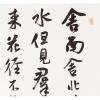 舍南舍北
水但見群
來花徑不